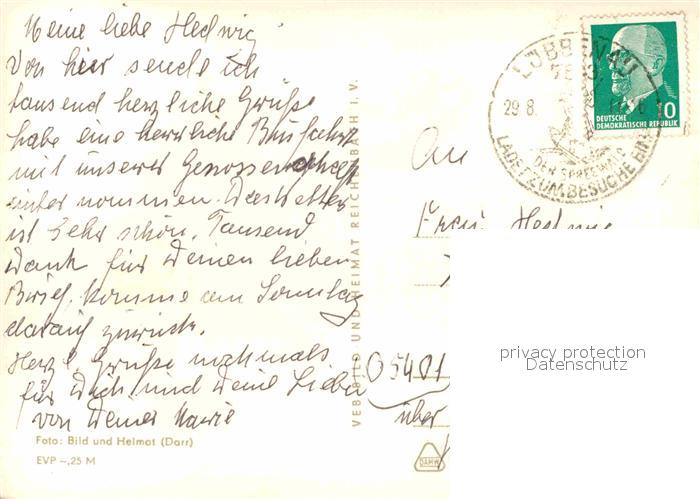 Meine liebe Hedwig
Von hier sende ich
tausend herzliche Grüße
habe eine herrliche Busfahrt
mit unserer Genossenschaft
unternommen. Das Wetter
ist sehr schön. Tausend
Dank für Deinen lieben
Brief, komme am Sonntag
darauf zurück.
Herzl. Grüße nochmals
für Dich und Deine Lieben
von Deiner Marie
Foto: Bild und Heimat (Darr)
EVP –,25 M
VEB BILD UND HEIMAT REICHENBACH I. V.
LÜBBENAU
29.8.
DER SPREEWALD
LADET ZUM BESUCHE EIN
DEUTSCHE
DEMOKRATISCHE REPUBLIK
10
An
Frau Hedwig
privacy protection
Datenschutz
05401
über
DAMW